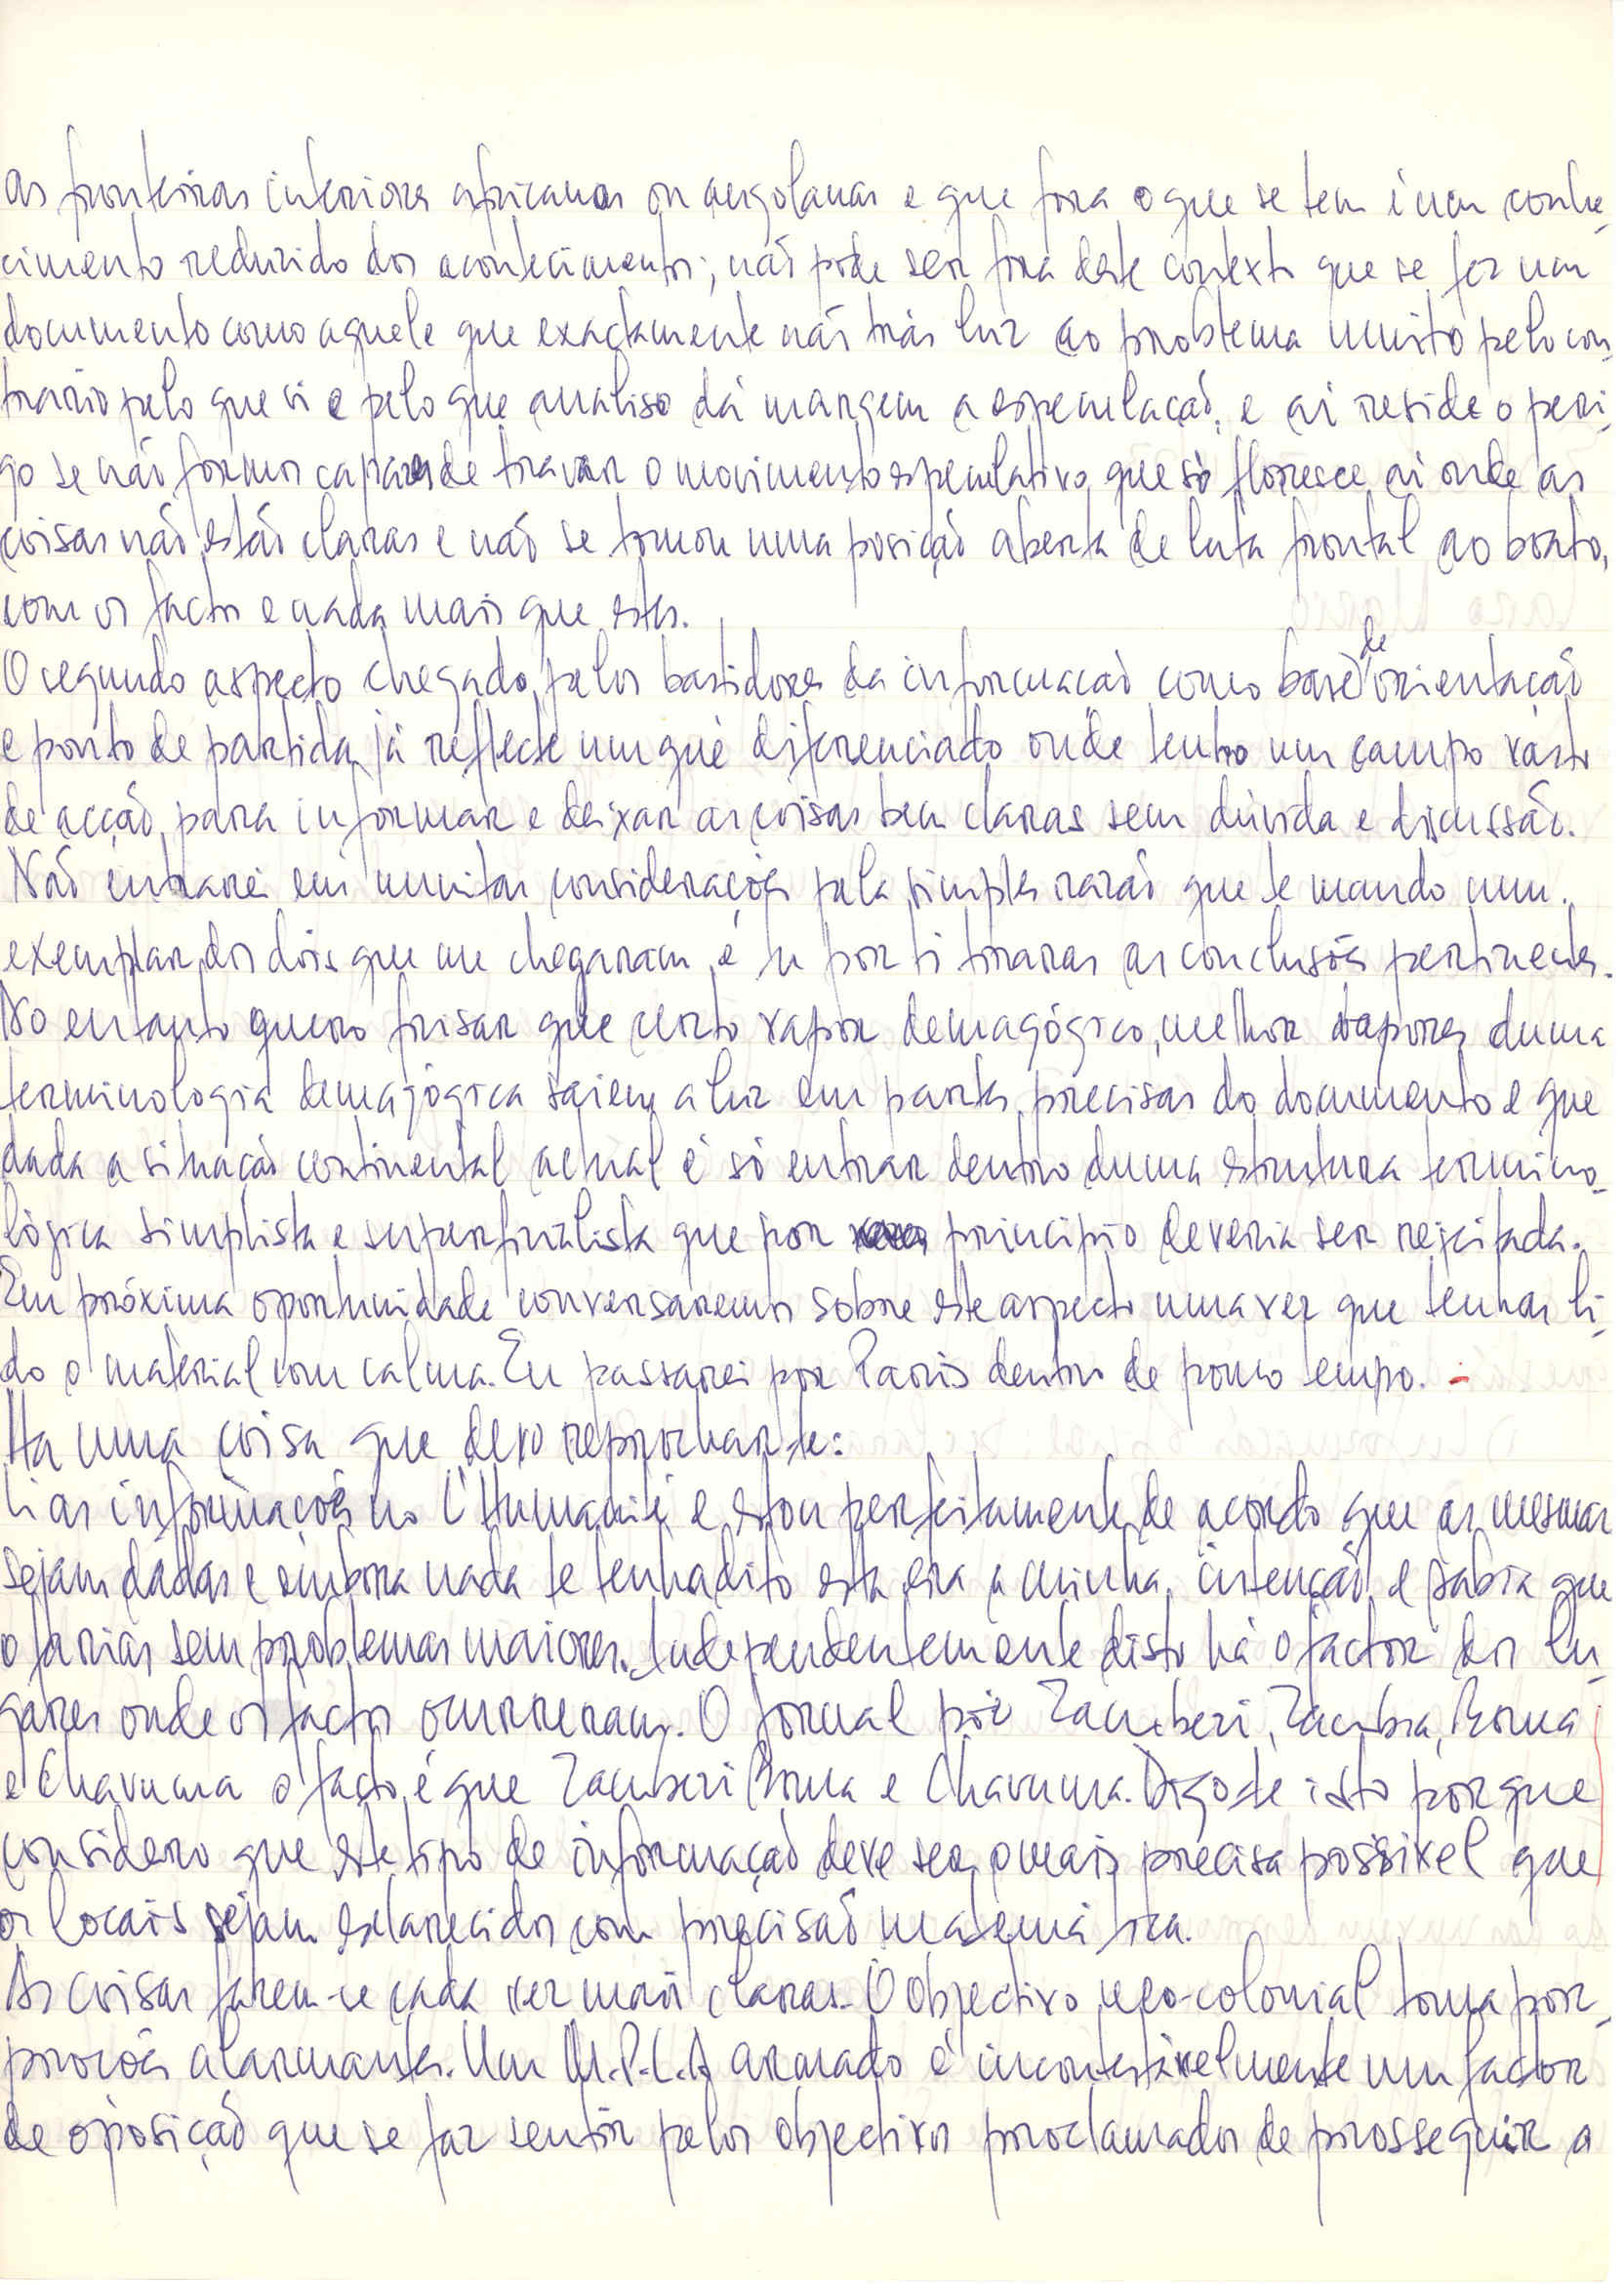 as fronteiras interiores africanas ou angolanas e que fora o que se tem é um conhe-
cimento reduzido dos acontecimentos; não pode ser fora deste contexto que se fez um
documento como aquele que exactamente não trás luz ao problema muito pelo con-
trário pelo que vi e pelo que analiso dá margem a espenlação, e ai reside o peri-
go se não formos capazes de travar o movimento espenlativo, que só floresce ai onde as
coisas não estão claras e não se tomou uma posição aberta de luta frontal ao boato,
com os factos e nada mais que estes.
O segundo aspecto chegado pelos bastidores da informação como base de orientação
e ponto de partida, já reflecte um quê diferenciado onde tenho um campo vasto
de acção, para informar e deixar as coisas bem claras sem dúvida e discussão.
Não entrarei em muitas considerações pela simples razão que te mando um
exemplar dos dois que me chegaram, e tu por ti tiraras as conclusões pertinentes.
No entanto quero frisar que certo vapor demagógico, melhor vapores duma
terminologia demagógica saiem a luz em partes precisas do documento e que
dada a situação continental actual é só entrar dentro duma estrutura termino-
lógica simplista e superfizalista que por principio deveria ser rejeitada.
Em próxima oportunidade conversaremos sobre este aspecto uma vez que tenhas li-
do o material com calma. Eu passarei por Paris dentro de pouco tempo. -
Ha uma coisa que devo reprochar-te:
li as informações no L'Humanité e estou perfeitamente de acordo que as mesmas
sejam dadas e embora nada te tenha dito esta era a minha intenção e sabia que
o farias sem problemas maiores. Independentemente disto há o factor dos lu-
gares onde os factos ocurreram. O jornal pôe Zambezi, Zambia, Roma
e Chavuma o facto é que Zambezi Roma e Chavuma. Digo-te isto porque
considero que este tipo de informação deve ser o mais precisa possivel que
os locais sejam esclarecidos com precisão matemática.
As coisas fazem-se cada vez mais claras. O objectivo neo-colonial toma por-
porções alarmantes. Um M.P.L.A armado é incontestávelmente um factor
de oposição que se faz sentir pelos objectivos proclamados de prosseguir a